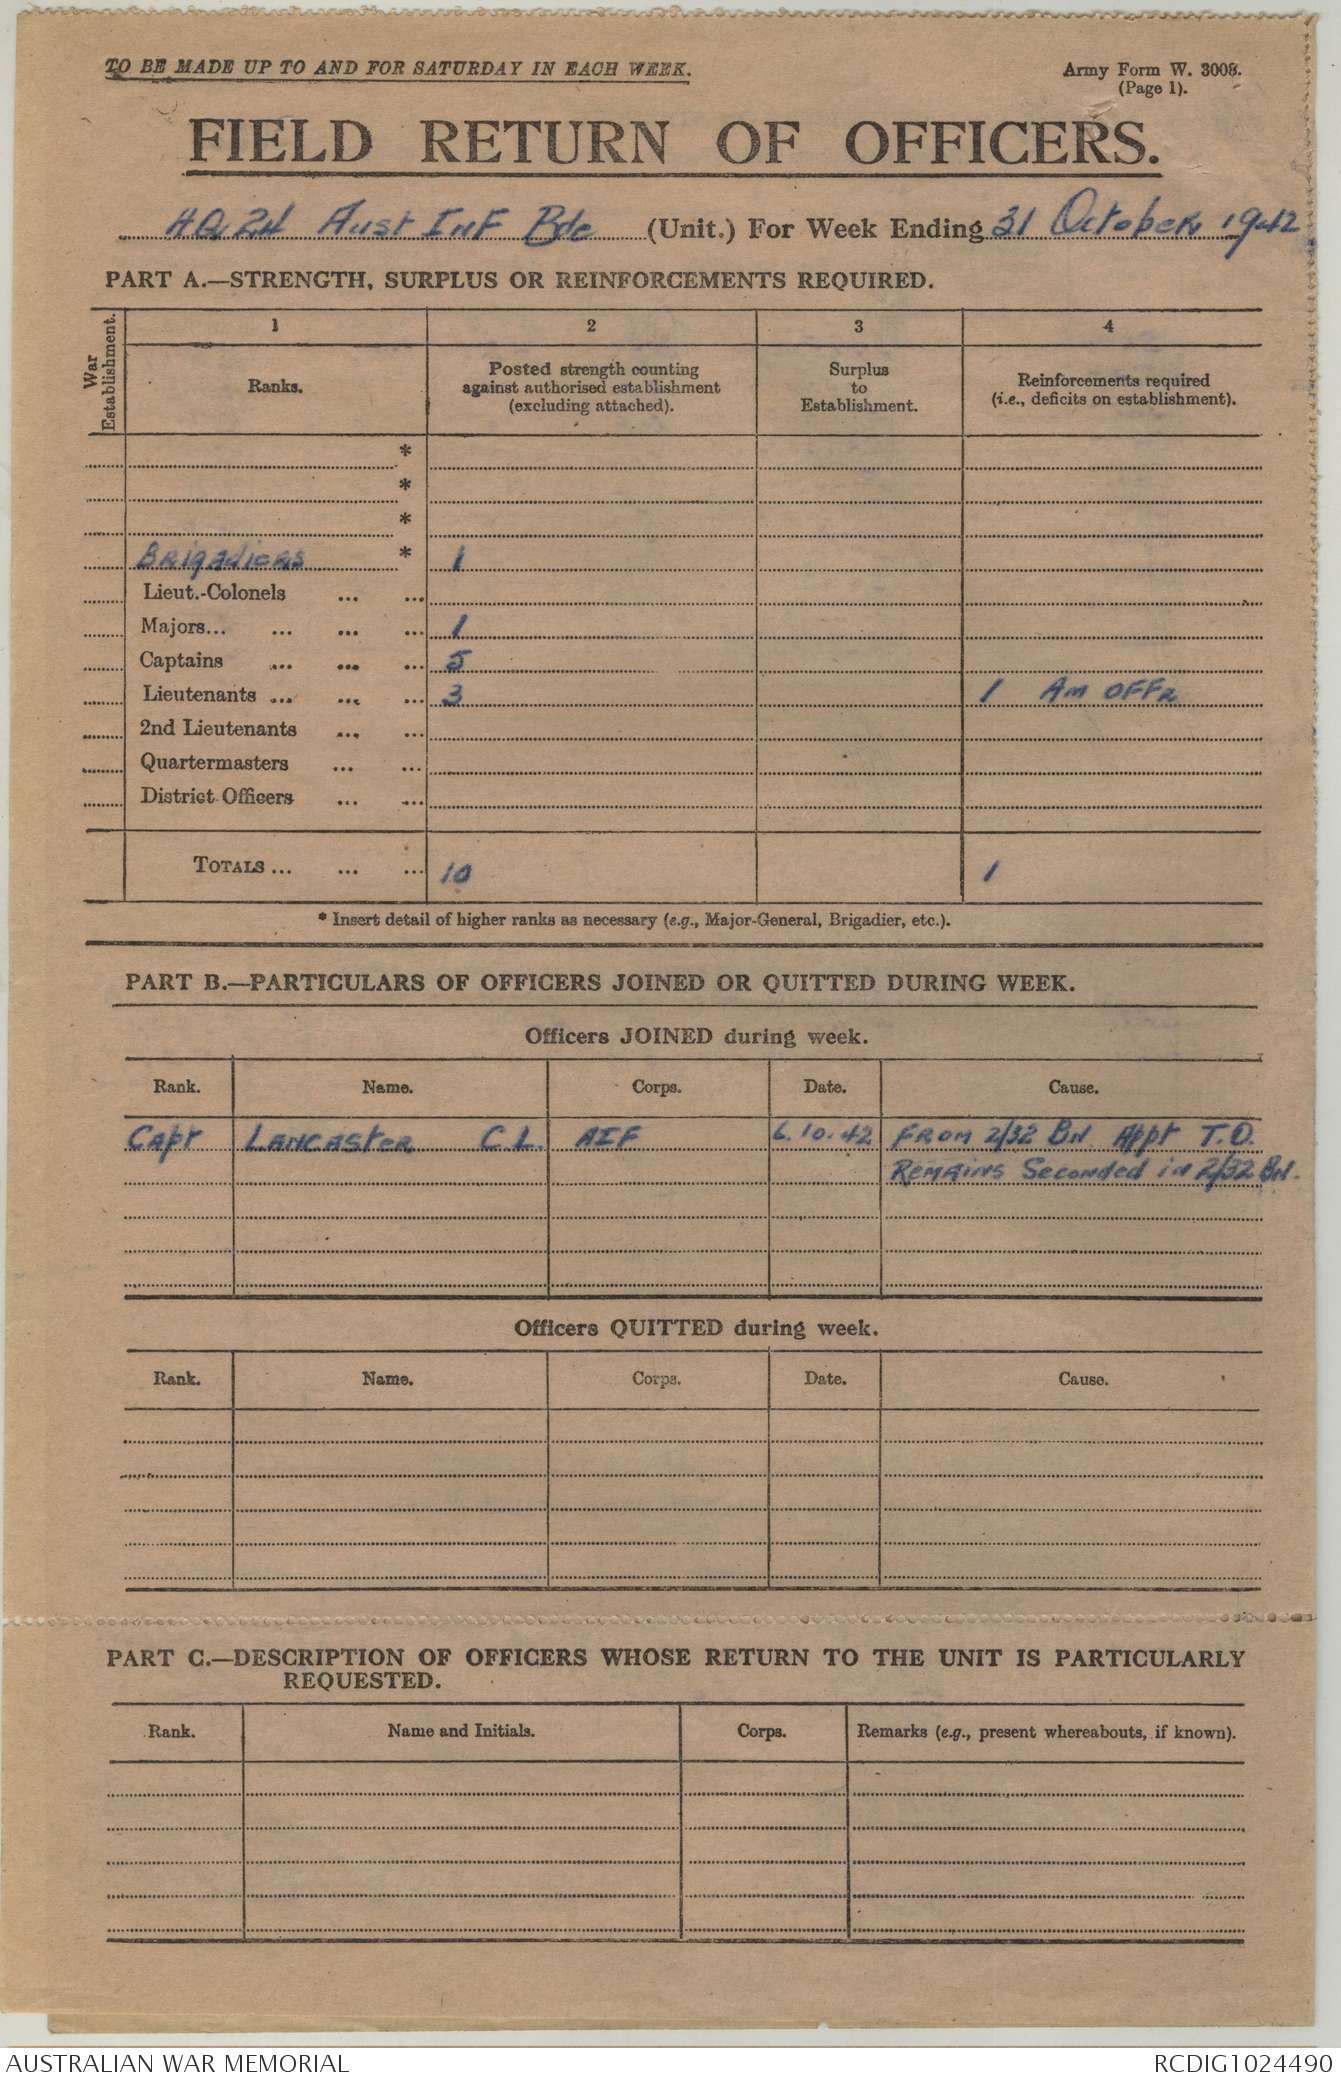 TO BE MADE UP TO AND FOR SATURDAY IN EACH WEEK.
Army Form W. 3008.
(Page 1).
FIELD RETURN OF OFFICERS.
HQ 24 Aust Inf Bde (Unit.) For Week Ending 31 October 1942
PART A.—STRENGTH, SURPLUS OR REINFORCEMENTS REQUIRED.
War Establishment.
1 2 3 4
Ranks.
Posted strength counting
against authorised establishment
(excluding attached).
Surplus
to
Establishment.
Reinforcements required
(i.e., deficits on establishment).
*
*
*
Brigadiers * 1
Lieut.-Colonels ... ...
Majors... ... ... ... 1
Captains ... ... ... 5
Lieutenants ... ... ... 3 1 Am Offr
2nd Lieutenants ... ...
Quartermasters ... ...
District Officers ... ...
TOTALS ... ... ... 10 1
* Insert detail of higher ranks as necessary (e.g., Major-General, Brigadier, etc.).
PART B.—PARTICULARS OF OFFICERS JOINED OR QUITTED DURING WEEK.
Officers JOINED during week.
Rank. Name. Corps. Date. Cause.
Capt Lancaster C.L. AIF 6.10.42 From 2/32 Bn. Appt T.O.
Remains Seconded in 2/32 Bn.
Officers QUITTED during week.
Rank. Name. Corps. Date. Cause.
PART C.—DESCRIPTION OF OFFICERS WHOSE RETURN TO THE UNIT IS PARTICULARLY
REQUESTED.
Rank. Name and Initials. Corps. Remarks (e.g., present whereabouts, if known).
AUSTRALIAN WAR MEMORIAL RCDIG1024490